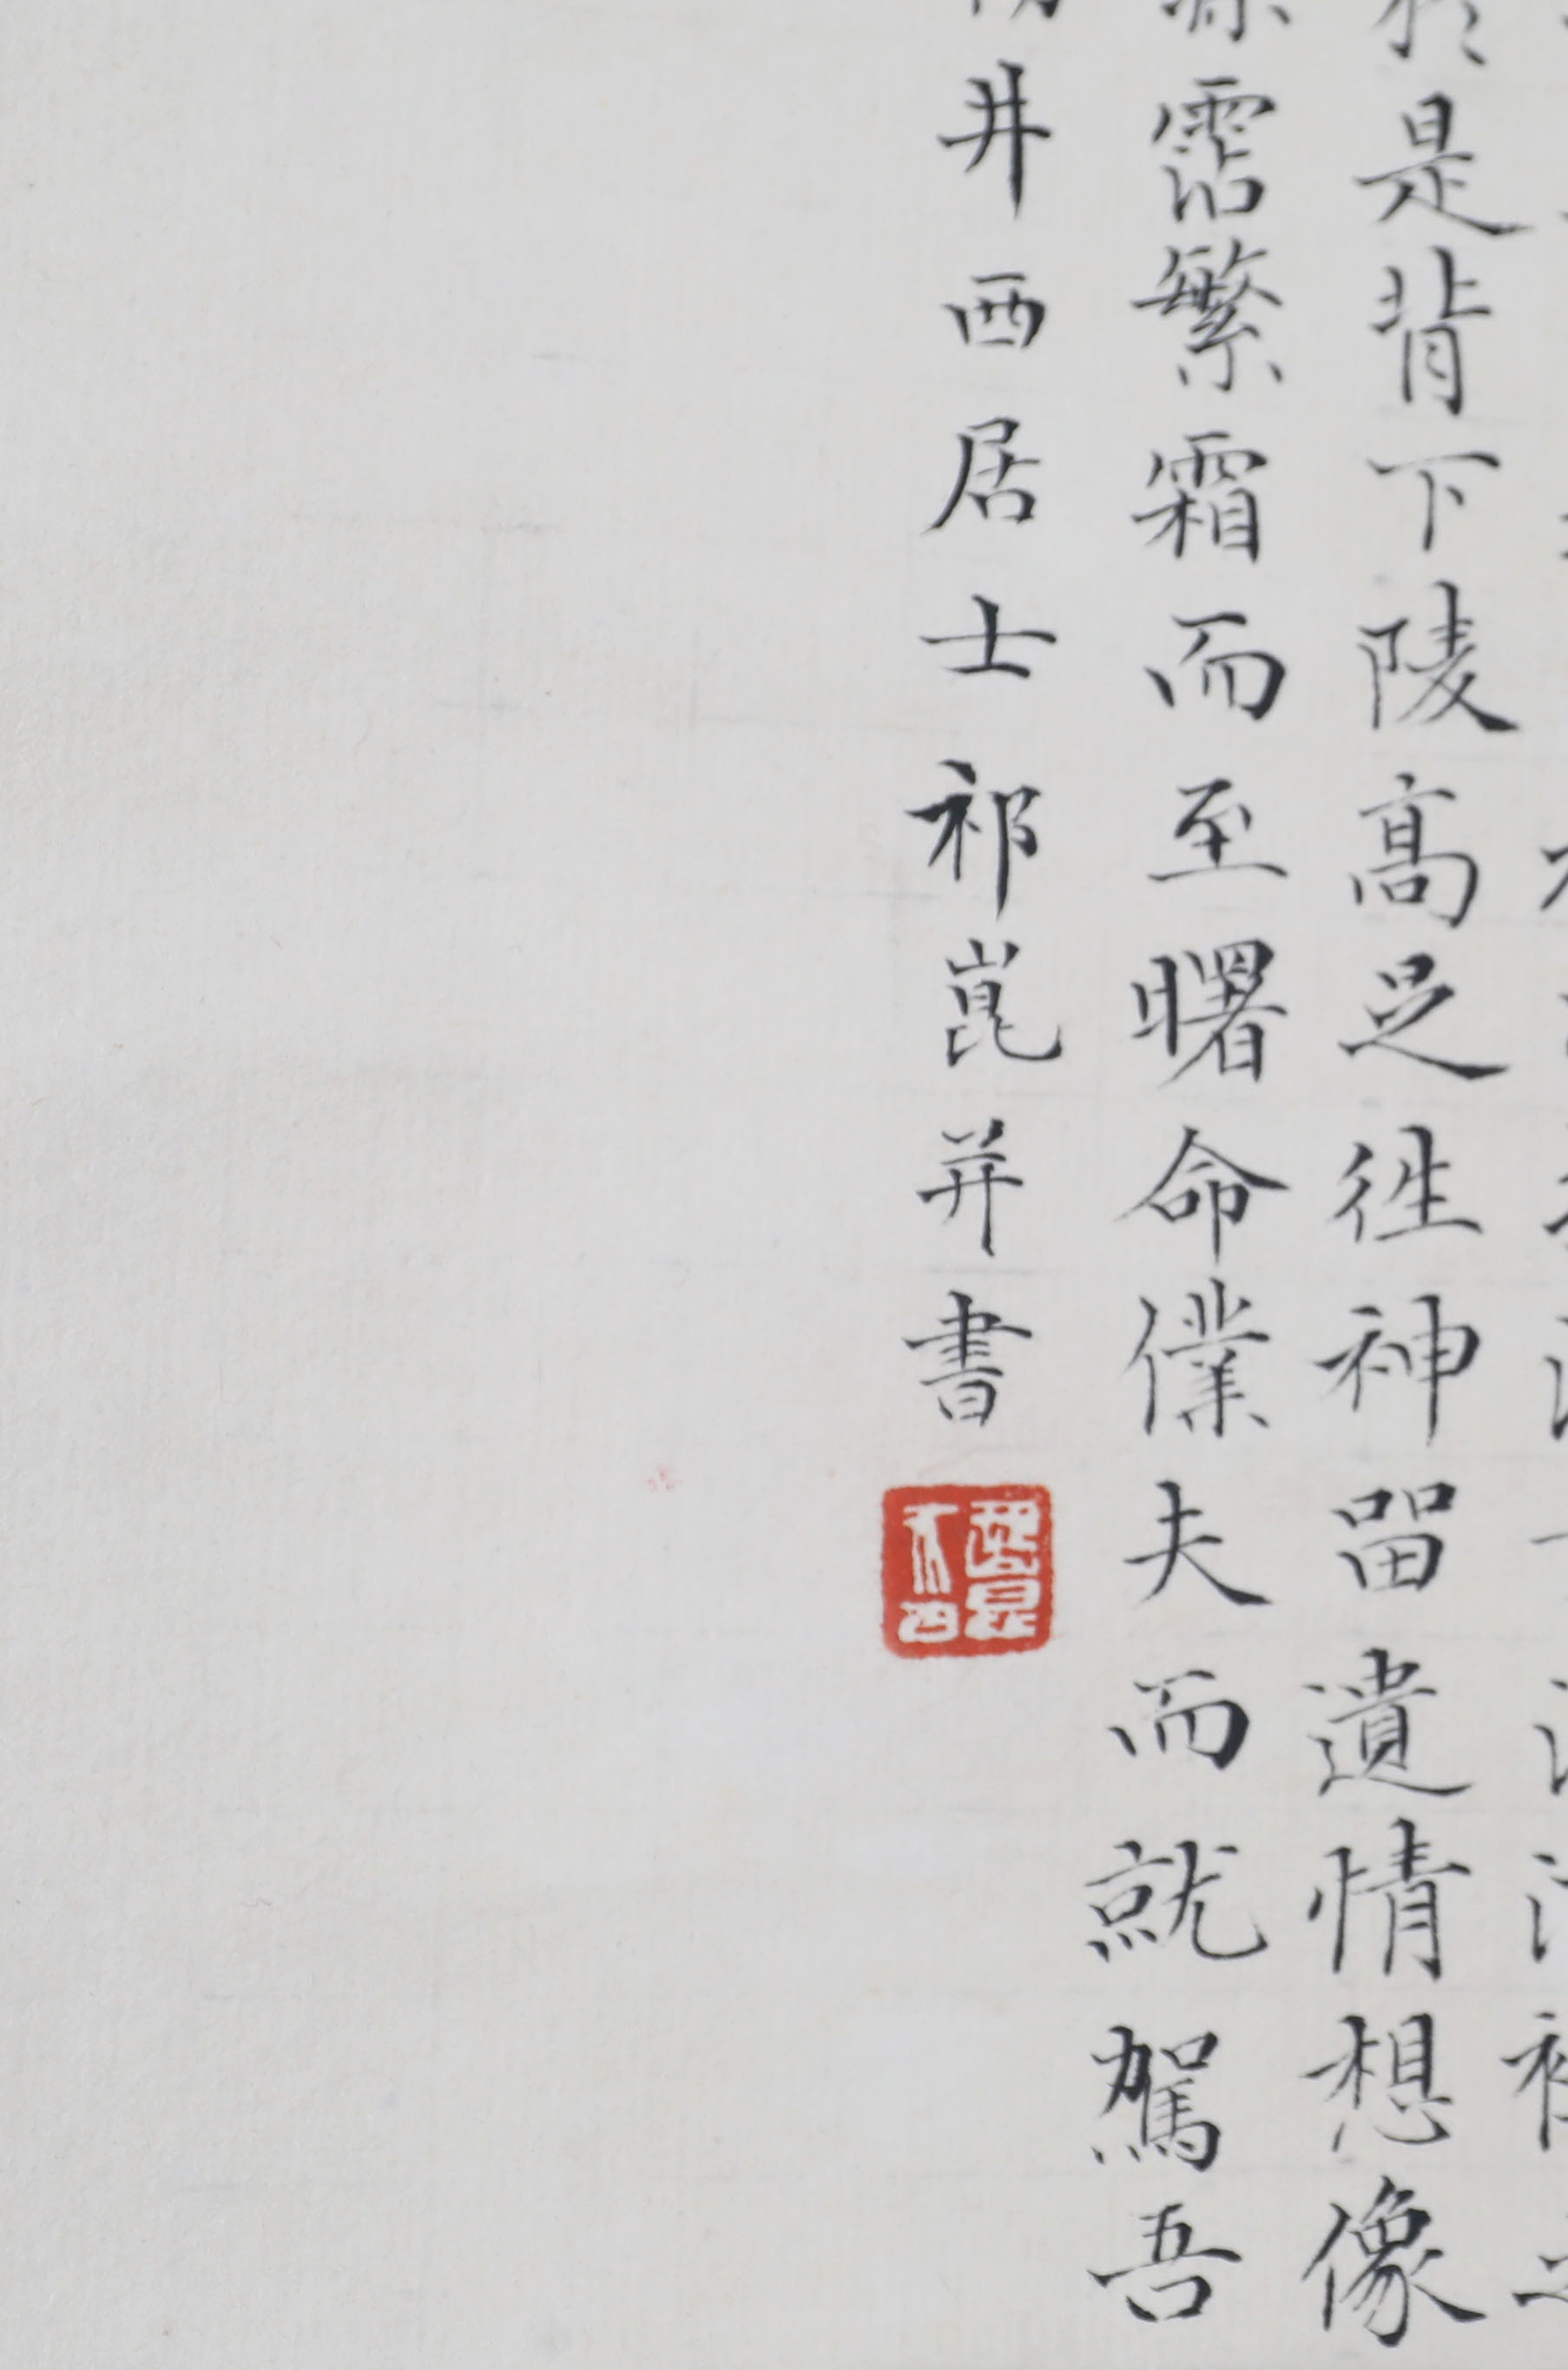 是背下陵髙足徃神留遺情想像
霑繁霜而至曙命僕夫而就駕吾
井西居士祁崑并書